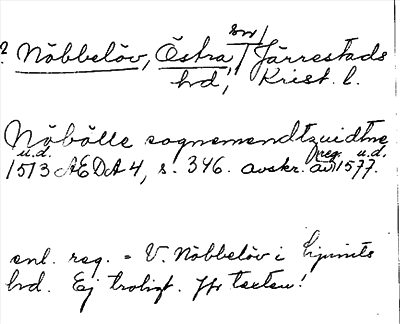 ? Nöbbelöv, Östra sn/ Järrestads
hd, Krist. l.
Nöbölle sognemendtzuidtne
u.d. reg. u.d.
1513 AEDA 4, s. 346. avskr. av 1577.
enl. reg. = V. Nöbbelöv i Ljunits
hd. Ej troligt. Jfr texten!